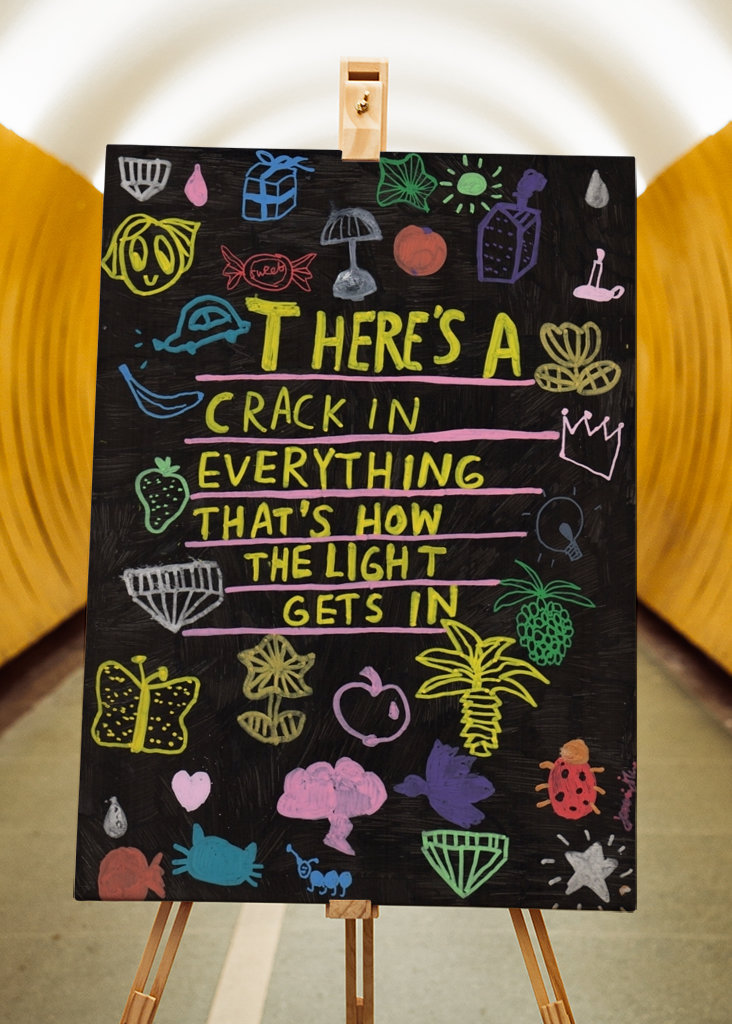 sweet
THERE'S A
CRACK IN
EVERYTHING
THAT'S HOW
THE LIGHT
GETS IN